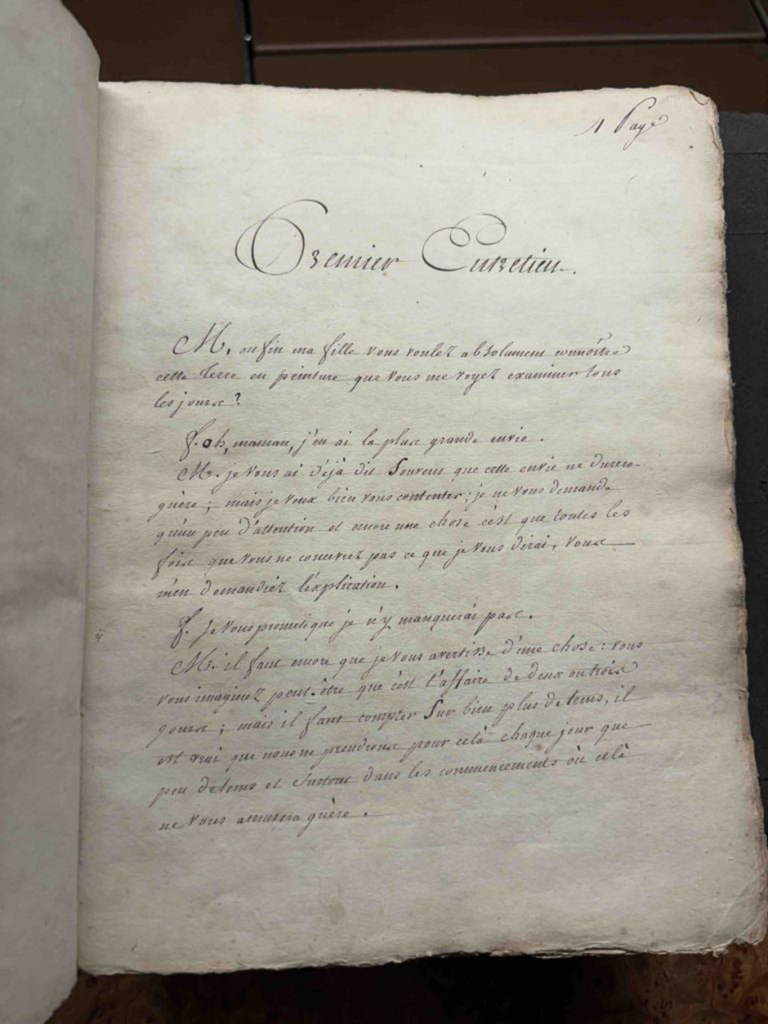 1 Page
Premier Entretien.
M. enfin ma fille vous voulez absolument connoître
cette Terre en peinture que vous me voyez examiner tous
les jours ?
f. oh, maman, j'en ai la plus grande envie.
M. je vous ai déjà dit Souvent que cette envie ne durera
guère ; mais je veux bien vous contenter : je ne vous demande
qu'un peu d'attention et encore une chose c'est que toutes les
fois que vous ne concevrez pas ce que je vous dirai, vous
m'en demandiez l'explication.
f. Je vous promet que je n'y manquerai pas.
M. il faut encore que je vous avertisse d'une chose : vous
vous imaginez peut-être que c'est l'affaire de deux ou trois
jours ; mais il faut compter Sur bien plus de tems, il
est vrai que nous ne prendrons pour celà chaque jour que
peu de tems et surtout dans les commencements où celà
ne vous amusera guère.